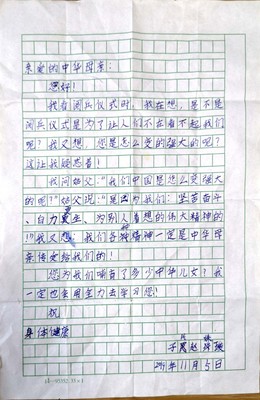 亲爱的中华母亲:
您好!
我看阅兵仪式时,我在想,是不是
阅兵仪式是为了让人们不在看不起我们
呢?我又想,您是怎么变的强大的呢?
这让我疑思着!
我问姑父:“我们中国是怎么变强大
的呢?”姑父说:“是因为我们:坚苦奋斗、
自力更生、为别人着想的伟大精神的
!”我又想:我们各种精神一定是中华母
亲传受给我们的!
您为我们哺育了多少中华儿女?我
一定也会用全力去学习您!
祝
身体健康
年11月5日